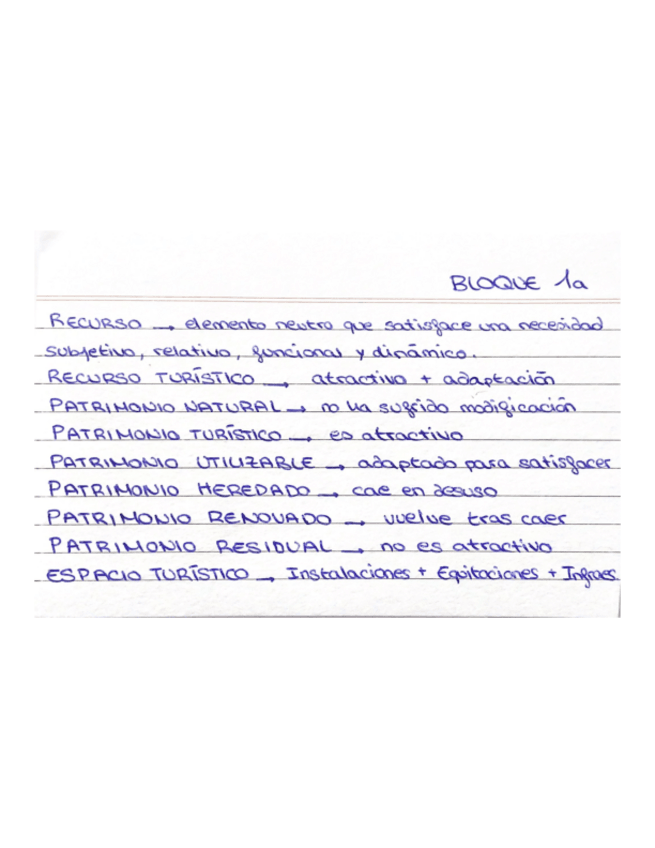 BLOQUE 1a
RECURSO → elemento neutro que satisface una necesidad
subjetivo, relativo, funcional y dinámico.
RECURSO TURÍSTICO → atractivo + adaptación
PATRIMONIO NATURAL → no ha sufrido modificación
PATRIMONIO TURÍSTICO → es atractivo
PATRIMONIO UTILIZABLE → adaptado para satisfacer
PATRIMONIO HEREDADO → cae en desuso
PATRIMONIO RENOVADO → vuelve tras caer
PATRIMONIO RESIDUAL → no es atractivo
ESPACIO TURÍSTICO → Instalaciones + Equitaciones + Infraes